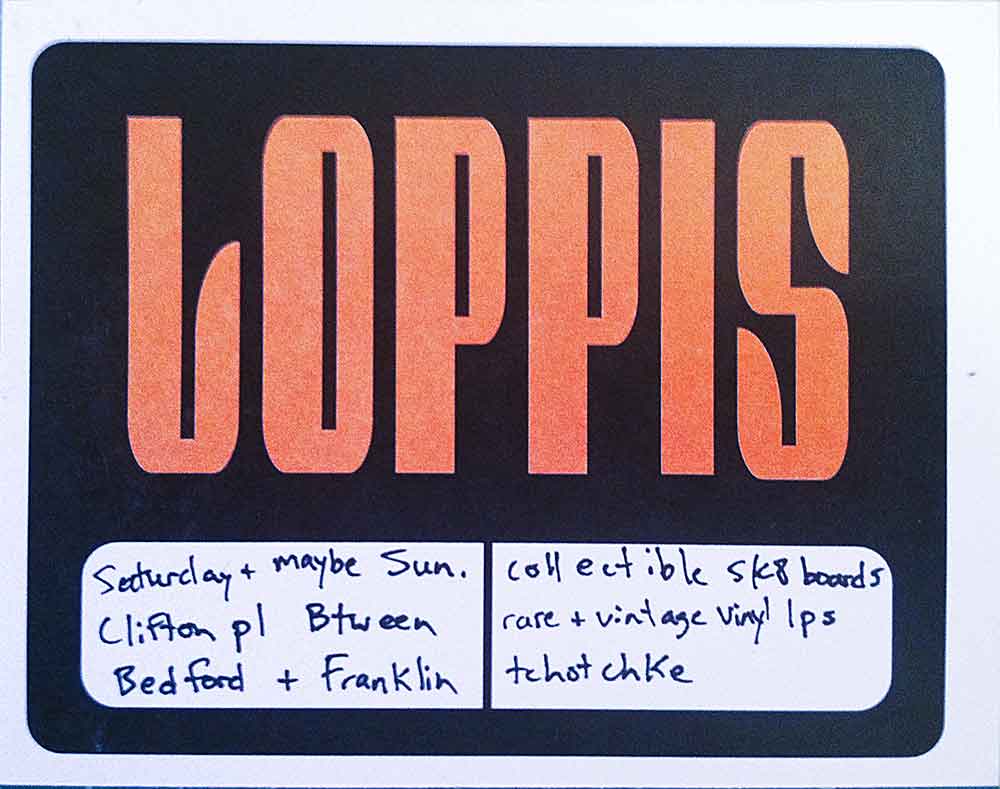 LOPPIS
Saturday + maybe Sun.
Clifton pl Btween
Bedford + Franklin
collectible sk8 boards
rare + vintage vinyl lps
tchotchke